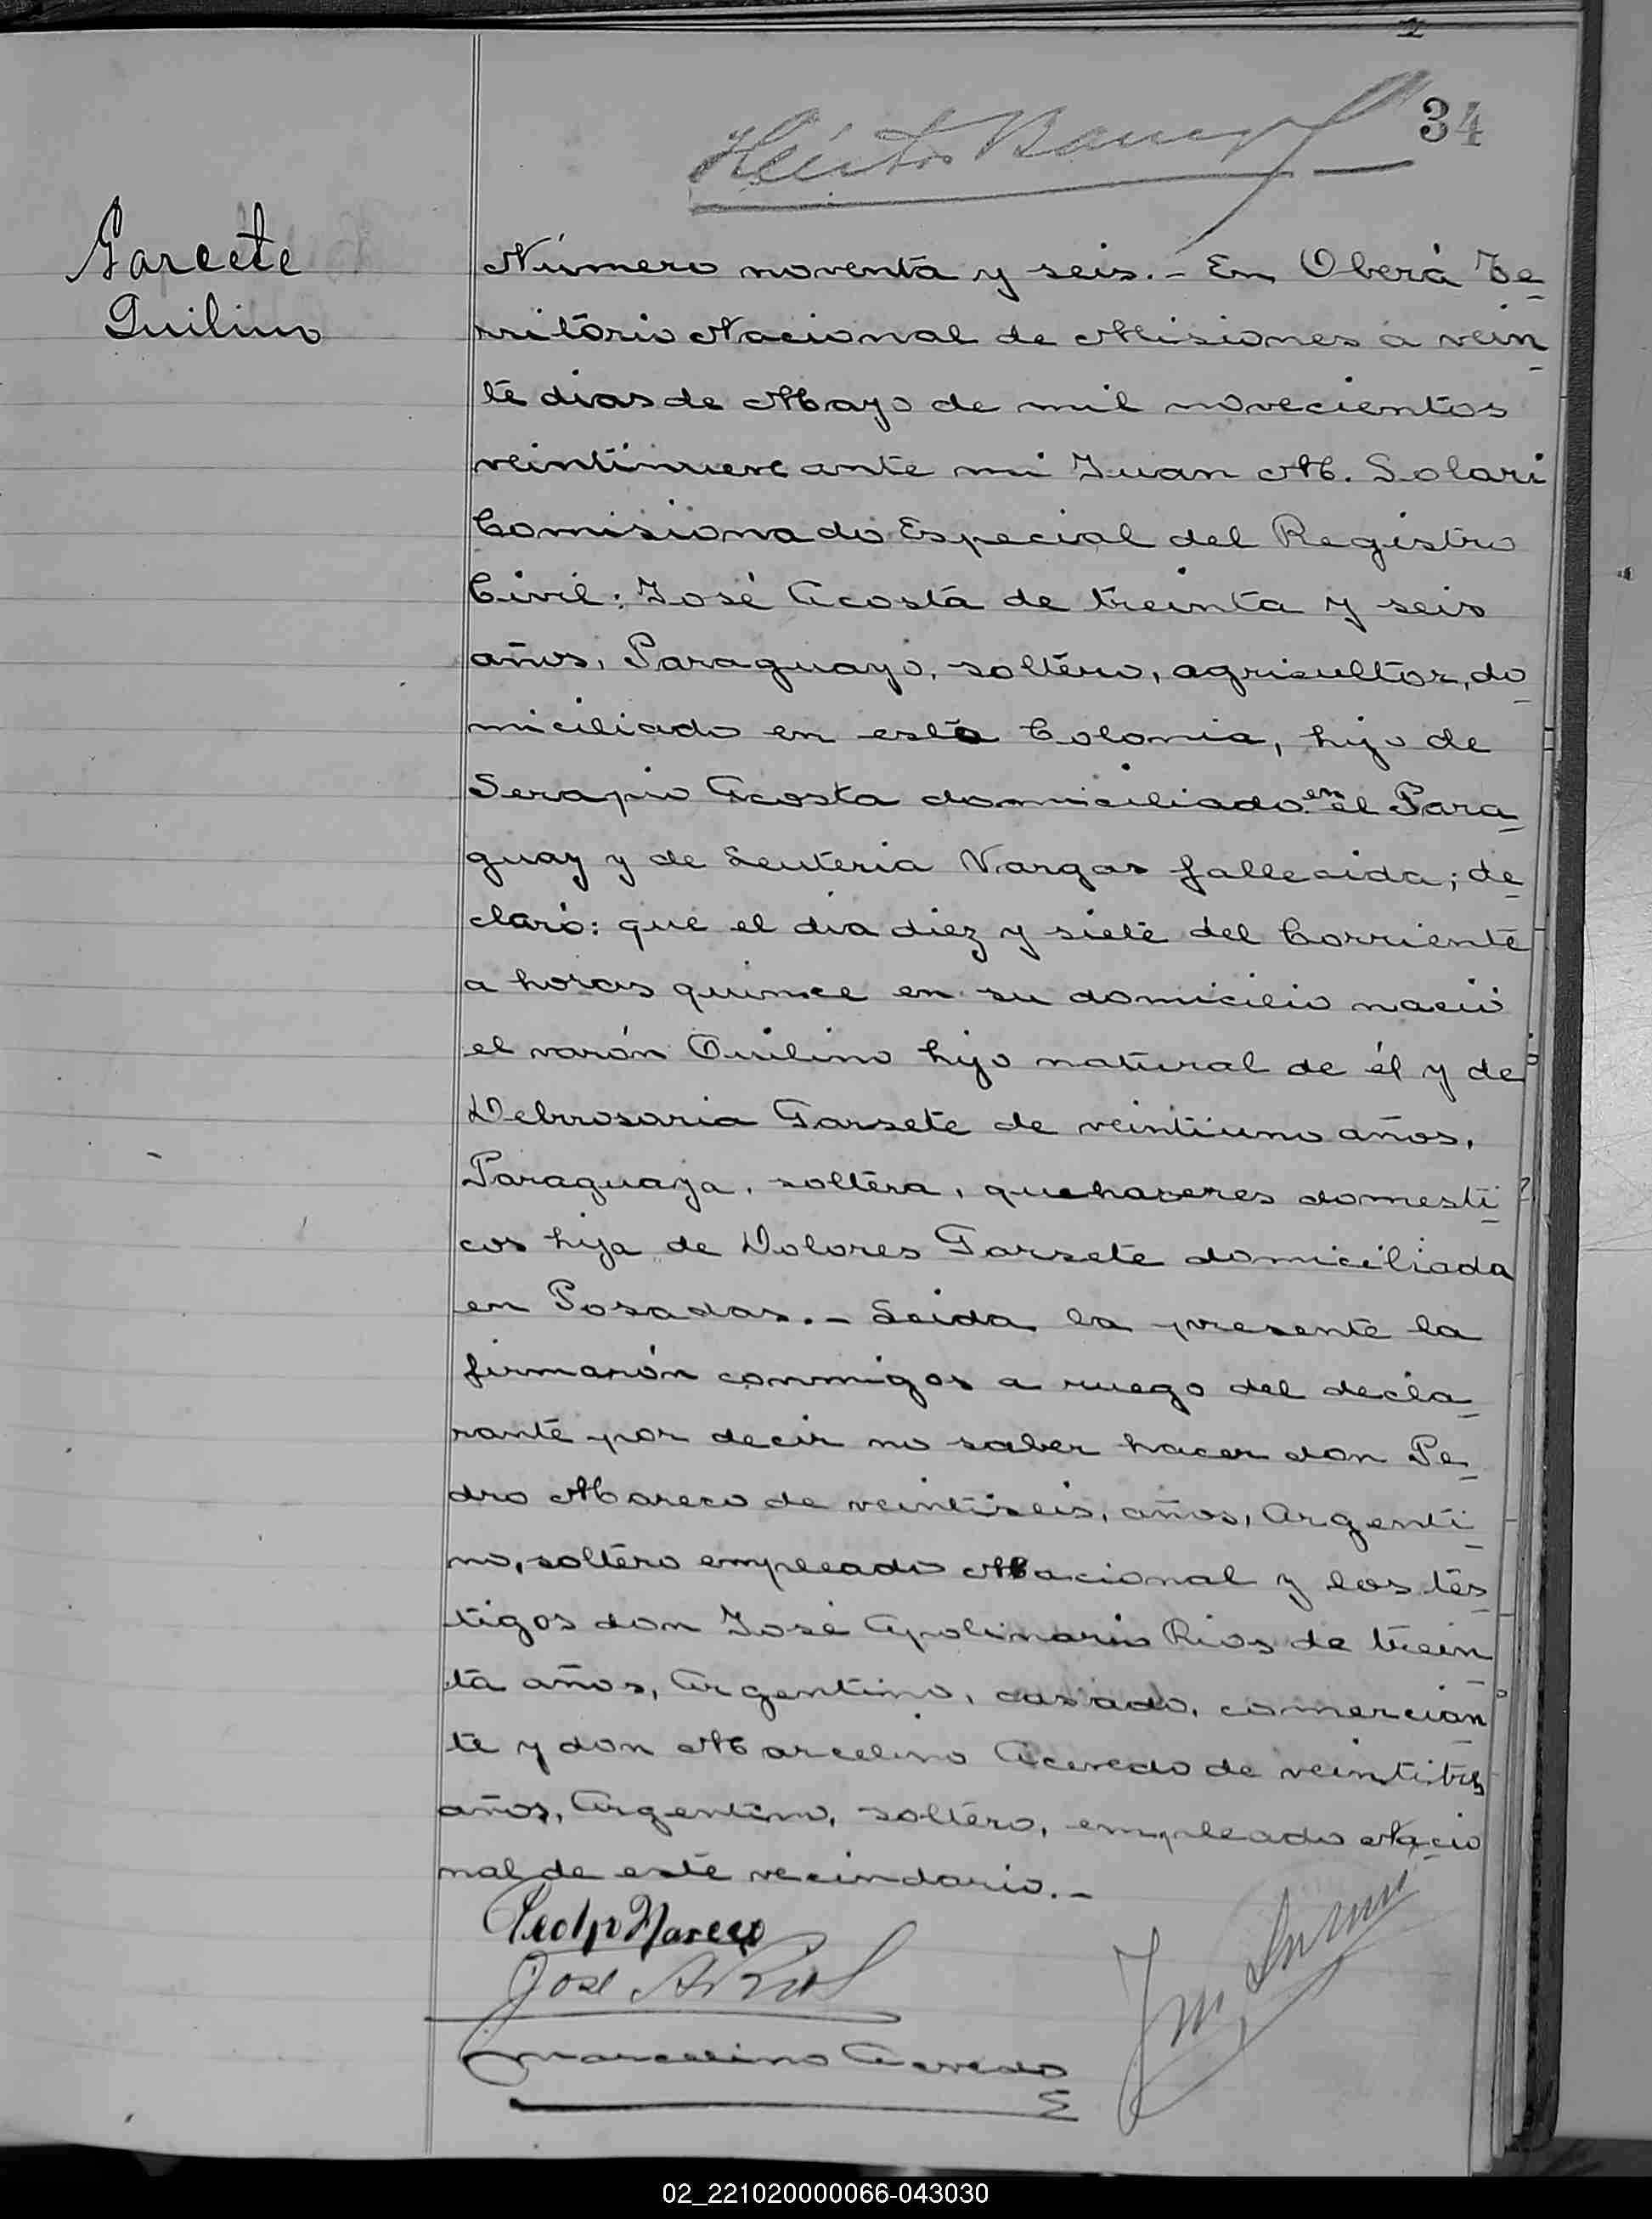 2
34
Héctor
Garcete
Quilino
Número noventa y seis.- En Oberá Te-
rritorio Nacional de Misiones a vein-
te dias de Mayo de mil novecientos
veintinueve ante mi Juan M. Solari
Comisionado Especial del Registro
Civil: José Acosta de treinta y seis
años, Paraguayo, soltero, agricultor, do-
miciliado en esta Colonia, hijo de
Serapio Acosta domiciliado en el Para-
guay y de Leuteria Vargas fallecida; de-
claró: que el dia diez y siete del Corriente
a horas quince en su domicilio nació
el varón Quilino hijo natural de él y de
Debrosaria Garsete de veintiuno años,
Paraguaya, soltera, quehaseres domesti-
cos hija de Dolores Garsete domiciliada
en Posadas.- Leida la presente la
firmarón conmigos a ruego del decla-
rante por decir no saber hacer don Pe-
dro Mareco de veintiseis, años, Argenti-
no, soltero empleado Nacional y los tes-
tigos don José Apolinario Rios de trein-
ta años, Argentino, casado, comercian-
te y don Marcelino Acevedo de veintitres
años, Argentino, soltero, empleado Nacio-
nal de este vecindario.-
Pedro Mareco
José A. Rios
Marcelino Acevedo
02_221020000066-043030